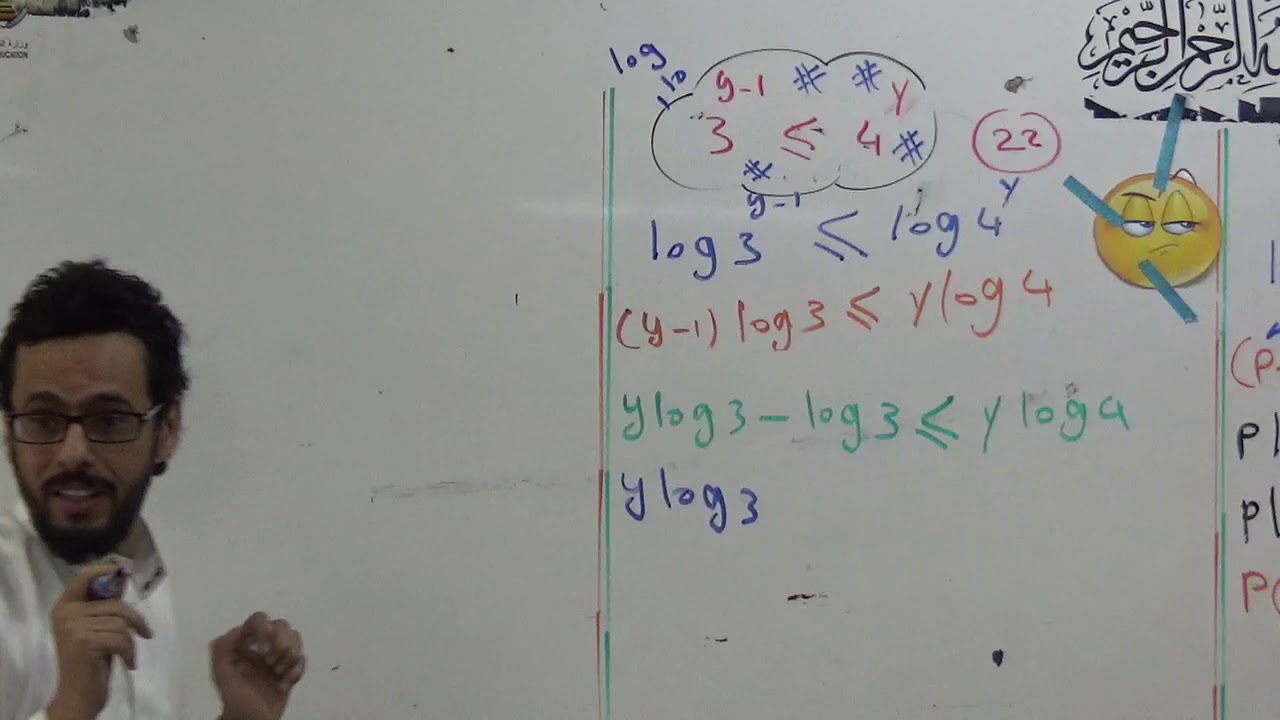 وزارة
UCATION
log₁₀
3^(y-1) ≤ 4^y
22
log 3^(y-1) ≤ log 4^y
(y-1) log 3 ≤ y log 4
y log 3 - log 3 ≤ y log 4
y log 3
الله الرحمن الرحيم
(P
P
P
P(